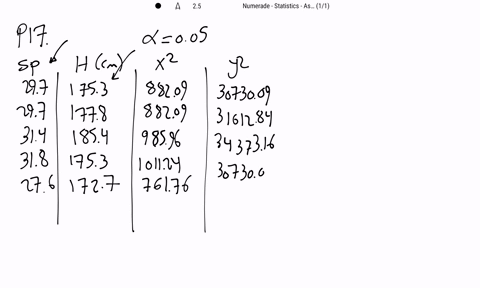 2.5 Numerade - Statistics - As... (1/1)
P17. α = 0.05
SP H (cm) x² y²
29.7 175.3 882.09 30730.09
29.7 177.8 882.09 31612.84
31.4 185.4 985.96 34373.16
31.8 175.3 1011.24 30730.0
27.6 172.7 761.76